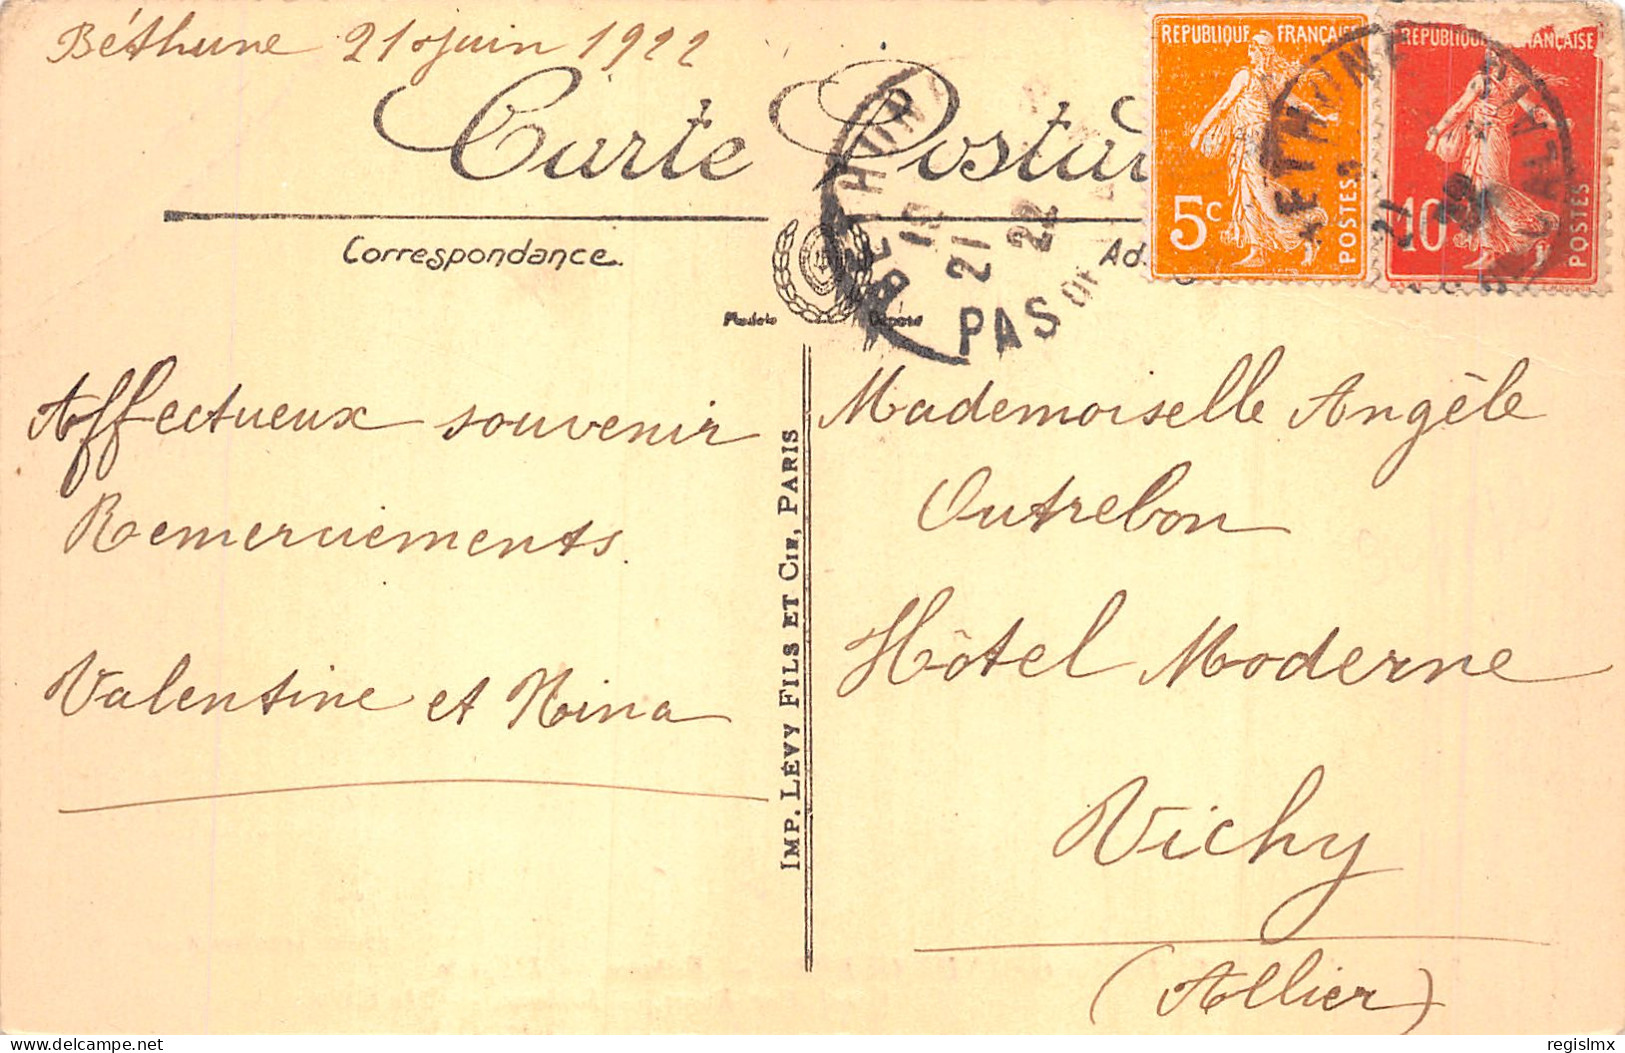 Béthune 21 juin 1922
Carte Posta
Correspondance.
Ad
Modèle Déposé
RÉPUBLIQUE FRANÇAISE
5c
POSTES
RÉPUBLIQUE FRANÇAISE
10
POSTES
BETHUNE
21
22
PAS DE
BETHUNE
21
PAS DE CALAIS
Affectueux souvenir
Remerciements.
Valentine et Nina
IMP. LÉVY FILS ET CIE, PARIS
Mademoiselle Angèle
Outrebon
Hôtel Moderne
Vichy
(Allier)
delcampe.net
regislmx